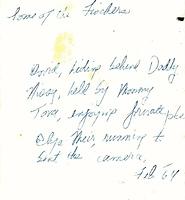 Some of the Fischers
David, hiding behind Daddy
Missy, held by Mommy
Tova, enjoying private
their, running to
the camera.
Feb 64